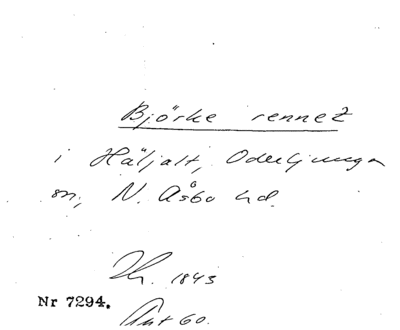 Björke rennet
i Häljalt, Oderljunga
sn, N. Åsbo hd.
Th. 1843
Nr 7294.
Ant 60.